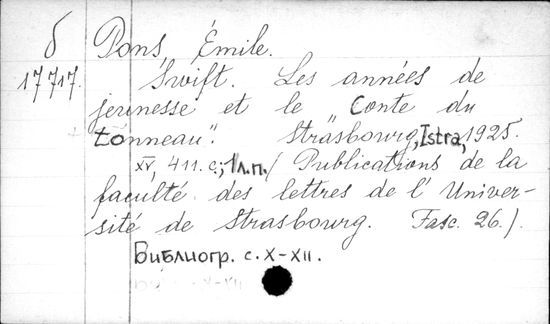 б Pons, Émile.
17717. Swift. Les années de
jeunesse et le "Conte du
tonneau". Strasbourg, Istra, 1925.
XV, 411 с.; 1 л.п. / Publications de la
faculté des lettres de l'Univer-
sité de Strasbourg. Fasc. 26./.
Библиогр. с. X-XII.